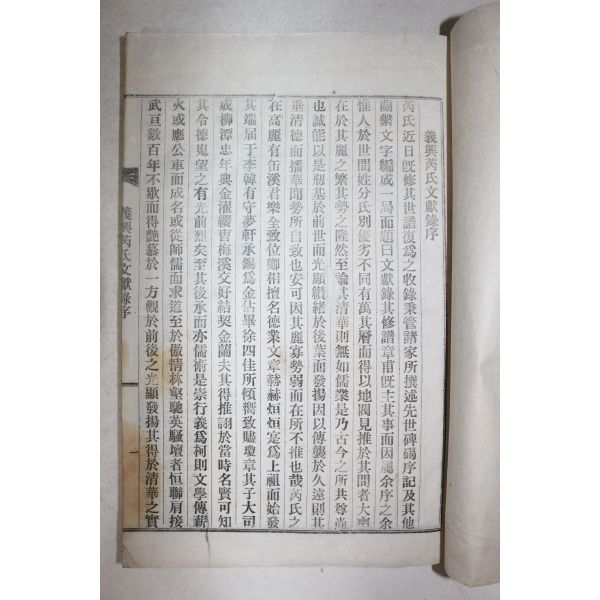 義興芮氏文獻錄序
芮氏近日旣修其世譜復爲之收錄秉管諸家所撰述先世碑碣序記及其他
關繫文字編成一局面題曰文獻錄其修譜章甫旣主其事而因屬余序之余
惟人於世間姓分氏別優劣不同有萬其層而得以地閥見推於其間者大率
在於其麗之繁其勢之隆然至論其清華則無如儒業是乃古今之所共尊尙
也誠能以是刱基於前世而光顯纘緖於後葉而發揚因以傳襲於久遠則其
垂淸德而播華聞勢所自致也安可因其麗寡勢弱而在所不推也哉芮氏之
在高麗有缶溪君樂全致位卿相擅名德業文章赫赫烜烜寔爲上祖而始發
其端屆于李韓有守夢軒承錫爲金佔畢徐四佳所傾嚮致賑瓊章其子大司
成柳潭忠年與金濯纓曺梅溪文好結契金蘭夫其得推詡於當時名賢可知
其令德嵬望之有光前烈矣至其後承而亦儒術是崇行義爲柯則文學傳薪
火或應公車而成名或從師儒而求道至於傲情林壑馳英騷壇者恒聯肩接
武亘數百年不歇而得艶慕於一方觀於前後之光顯發揚其得於清華之實
義興芮氏文獻錄序
一